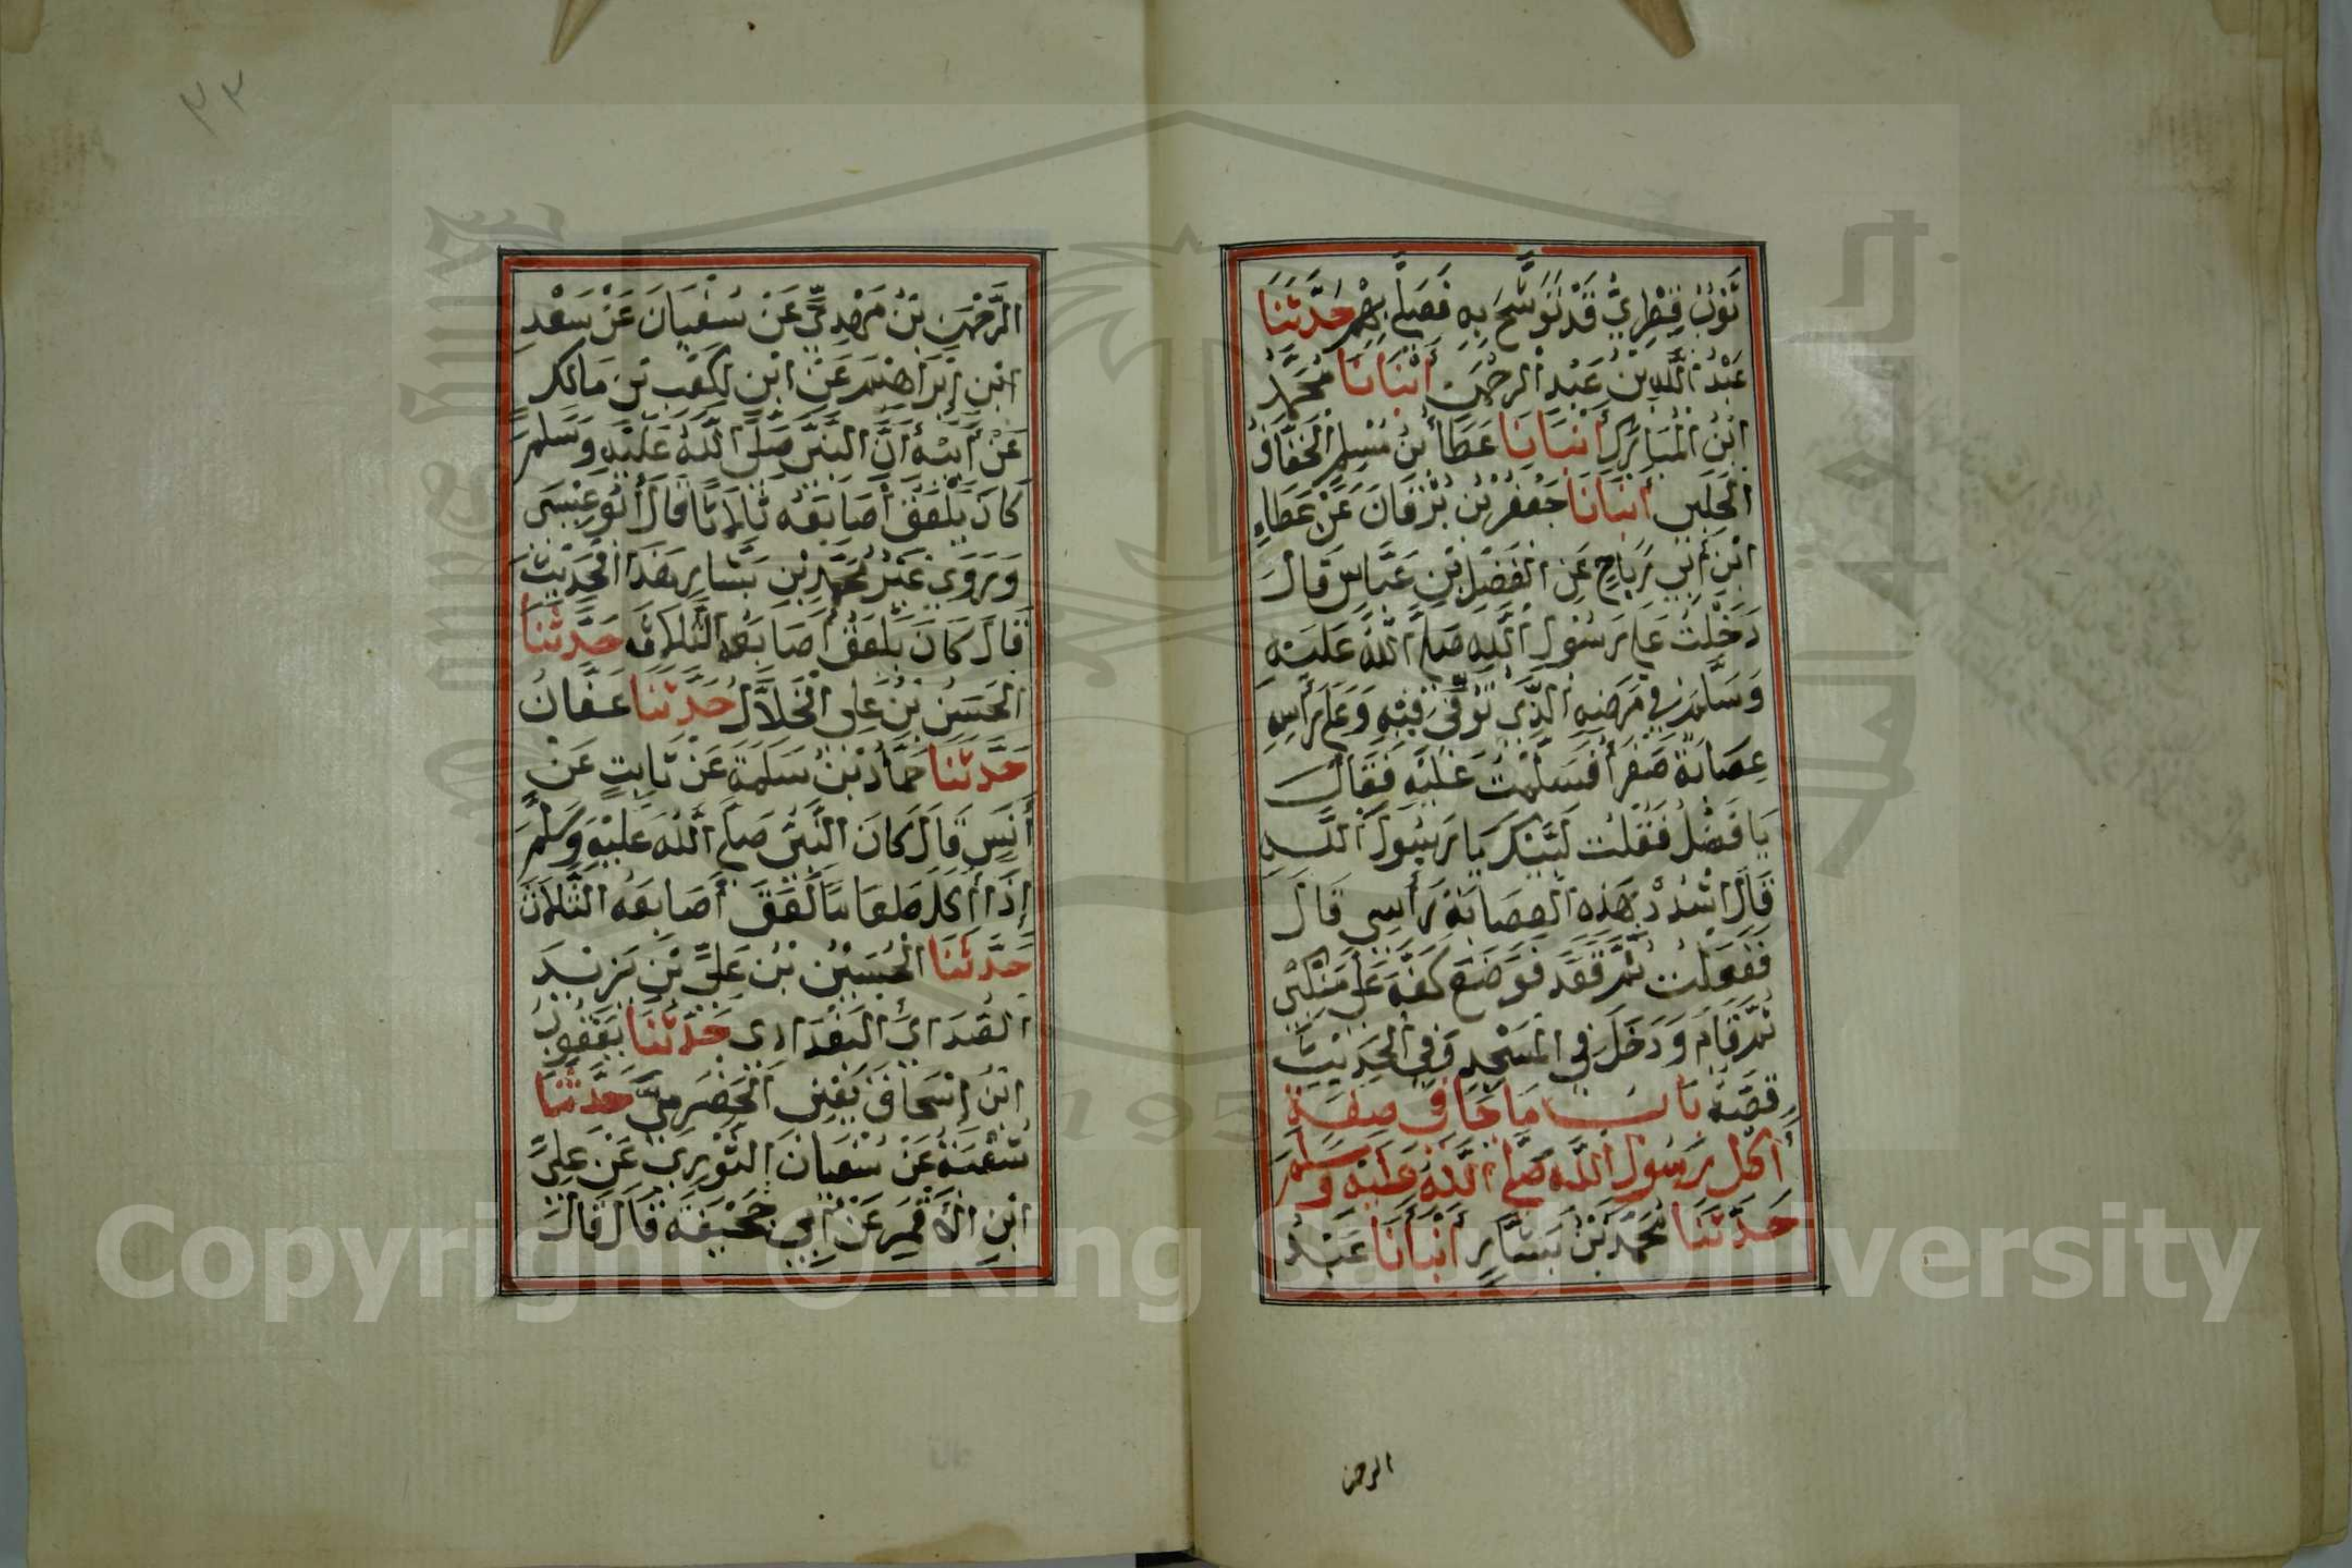 ثَوْبٌ قِطْرِيٌّ قَدْ تَوَشَّحَ بِهِ فَصَلَّى بِهِمْ حَدَّثَنَا
عَبْدُ اللَّهِ بْنُ عَبْدِ الرحْمَن أَنْبَانَا مُحَمَّدُ
ابْنُ الْمُبَارَكِ أَنْبَانَا عَطَاءُ بْنُ مُسْلِمٍ الْخَفَّافُ
الْحَلَبِي أَنْبَانَا جَعْفَرُ بْن بُرْقَانَ عَنْ عَطَاءِ
ابْنِ أَبِي رَبَاحٍ عَنِ الْفَضْلِ بْنِ عَبَّاسٍ قَالَ
دَخَلْتُ عَلَى رَسُولِ اللَّهِ صَلَّى اللَّهُ عَلَيْهِ
وَسَلَّمَ فِي مَرَضِهِ الَّذِي تُوُفِّيَ فِيْهِ وَعَلَى رَأْسِهِ
عِصَابَةٌ صَفْرَاُ فَسَلَّمْتُ عَلَيْهِ فَقَالَ
يَا فَضْلُ فَقُلْتُ لَبَّيْكَ يَا رَسُولَ اللَّهِ
قَالَ اشْدُدْ بِهَذِهِ الْعِصَابَةِ رَأْسِي قَالَ
فَفَعَلْتُ ثُمَّ قَعَدَ فَوَضَعَ كَفَّهُ عَلَى مَنْكِبَيَّ
ثُمَّ قَامَ وَدَخَلَ فِي الْمَسْجِدِ وَفِي الْحَدِيْثِ
قِصَّةٌ بَابُ مَا جَا فِي صِفَةِ
أَكْلِ رَسُولِ اللَّه صَلَّى اللَّهُ عَلَيْهِ وَسَلَّمَ
حَدَّثَنَا مُحَمَّدُ بْنُ بَشَّارٍ أَنْبَأَنَا عَبْدُ
الرحمن
٣٣
الرَّحْمَنِ بْنُ مَهْدِيٍّ عَنْ سُفْيَانَ عَنْ سَعْدِ
ابْنِ إِبْرَاهِيْمَ عَنْ ابْنٍ لِكَعْبِ بْنِ مَالِكٍ
عَنْ أَبِيْهِ أَنَّ النَّبِيَّ صَلَّى اللَّهُ عَلَيْهِ وَسَلَّمَ
كَانَ يَلْعَقُ أَصَابِعَهُ ثَلَاثًا قَالَ أَبُو عِيْسَى
وَرَوَى غَيْرُ مُحَمَّدِ بْنِ بَشَّارٍ هَذَا الْحَدِيْثَ
قَالَ كَانَ يَلْعَقُ أَصَابِعَهُ الثَّلَاثَ حَدَّثَنَا
الْحَسَنُ بْنُ عَلِي الْخَلَّالُ حَدَّثَنَا عَفَّانُ
حَدَّثَنَا حَمَّادُ بْنُ سَلَمَةَ عَنْ ثَابِتٍ عَنْ
أَنَسٍ قَالَ كَانَ النَّبِيُّ صَلَّى اللَّهُ عَلَيْهِ وَسَلَّمَ
إِذَا أَكَلَ طَعَامًا لَعِقَ أَصَابِعَهُ الثَّلَاثَ
حَدَّثَنَا الْحُسَيْنُ بْنُ عَلِيِّ بْنِ يَزِيْدَ
الصُّدَائِيُّ الْبَغْدَادِي حَدَّثَنَا يَعْقُوبُ
ابْنُ إِسْحَاقَ يَعْنِي الْحَضْرَمِيَّ حَدَّثَنَا
شُعْبَةُ عَنْ سُفْيَانَ الثَّوْرِيِّ عَنْ عَلِيِّ
ابْنِ الْأَقْمَرِ عَنْ أَبِي جُحَيْفَةَ قَالَ قَالَ
Copyright © King Saud University
195